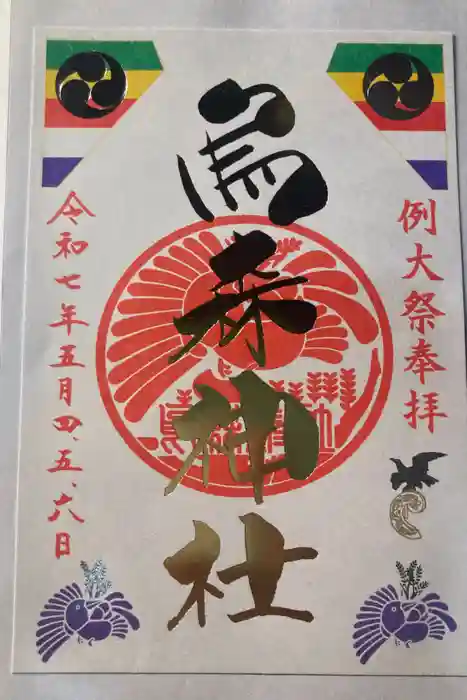 例大祭奉拝
烏森神社
令和七年五月四、五、六日